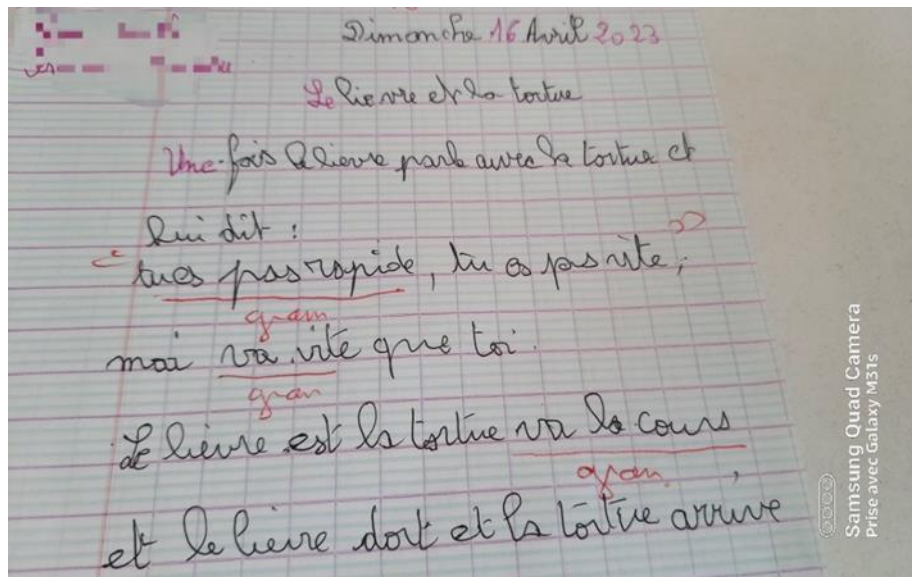 Dimanche 16 Avril 2023
Le lievre et la tortue
Une fois le lievre parle avec la tortue et
lui dit :
« tu es pas rapide, tu es pas vite, »
gram
moi va vite que toi.
gram
Le lièvre est la tortue va la cours
gram
et le lievre dort et la tortue arrive
Samsung Quad Camera
Prise avec Galaxy M31s